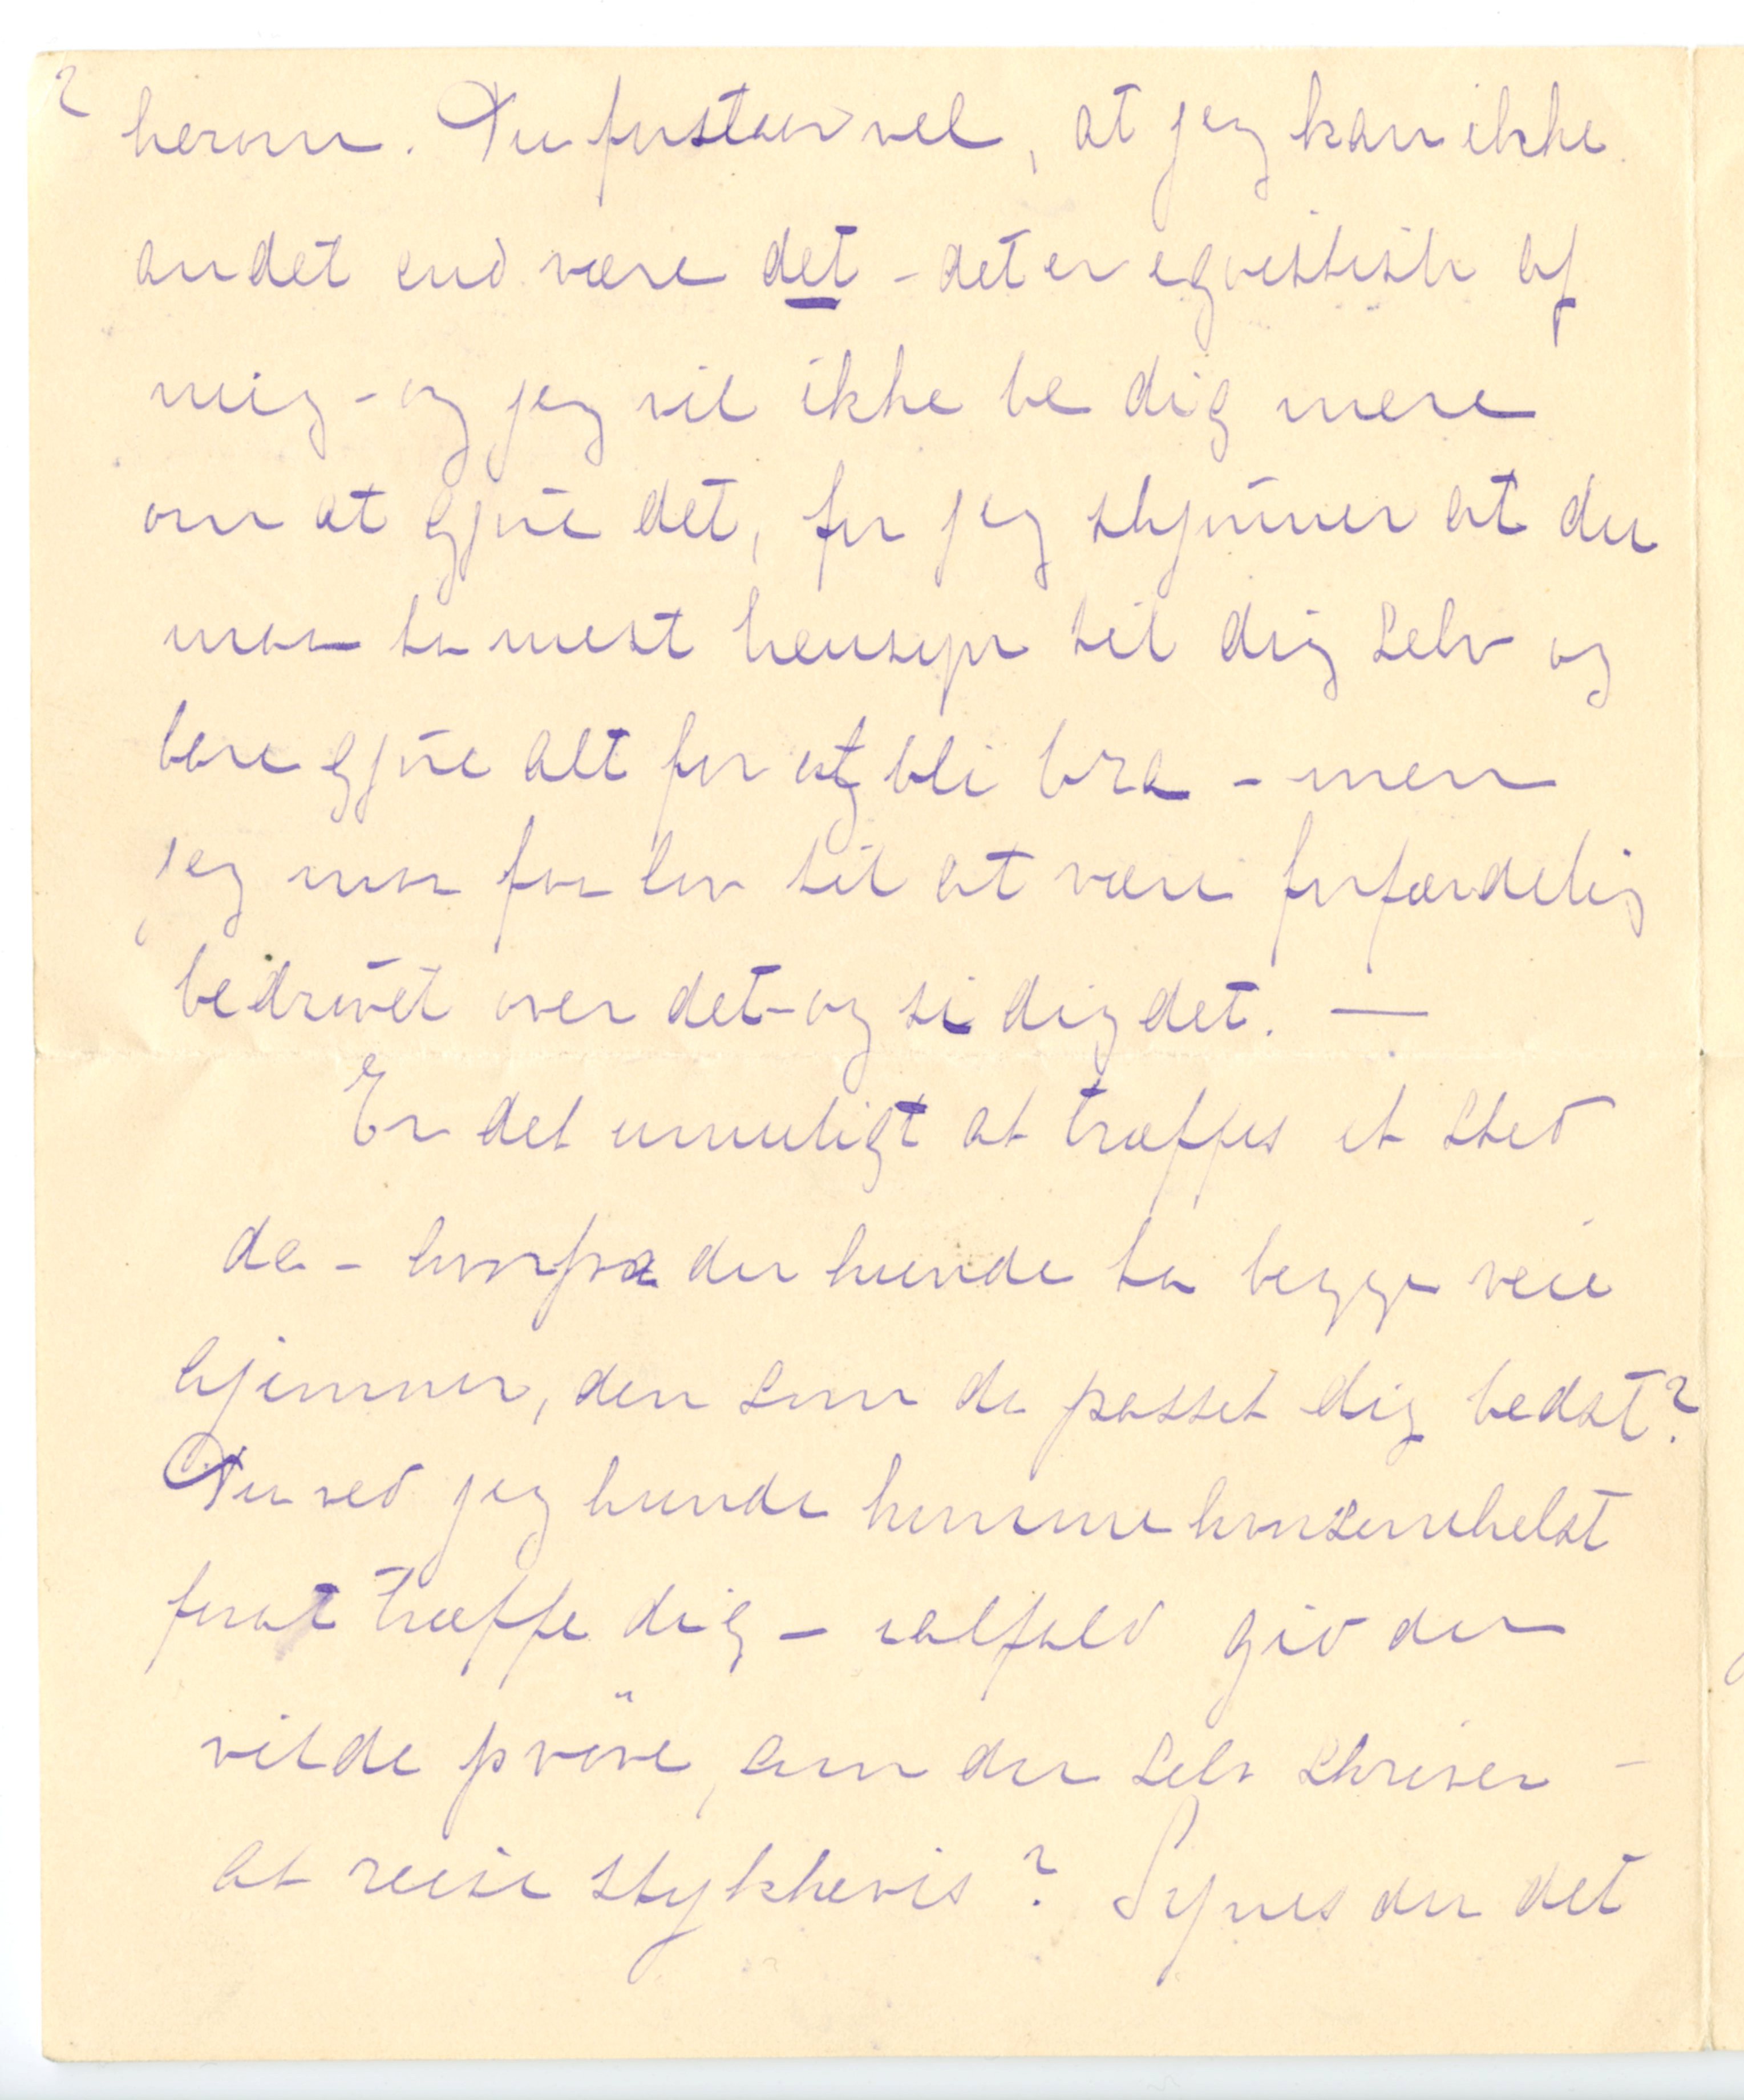 2
herom. Du forstaar vel, at jeg kan ikke
andet end være det - det er egoistisk af
mig - og jeg vil ikke be dig mere
om at gjøre det, for jeg skjønner at du
maa ta mest hensyn til dig selv og
bare gjøre alt for at bli bra - men
jeg maa faa lov til at være forfærdelig
bedrøvet over det - og si dig det. —
Er det umuligt at træffes et sted
da - hvorfra du kunde ta begge veie
hjemover, den som da passet dig bedst?
Du ved jeg kunde komme hvorsomhelst
forat træffe dig - ialfald gid du
vilde prøve, som du selv skriver -
at reise stykkevis? Synes du det